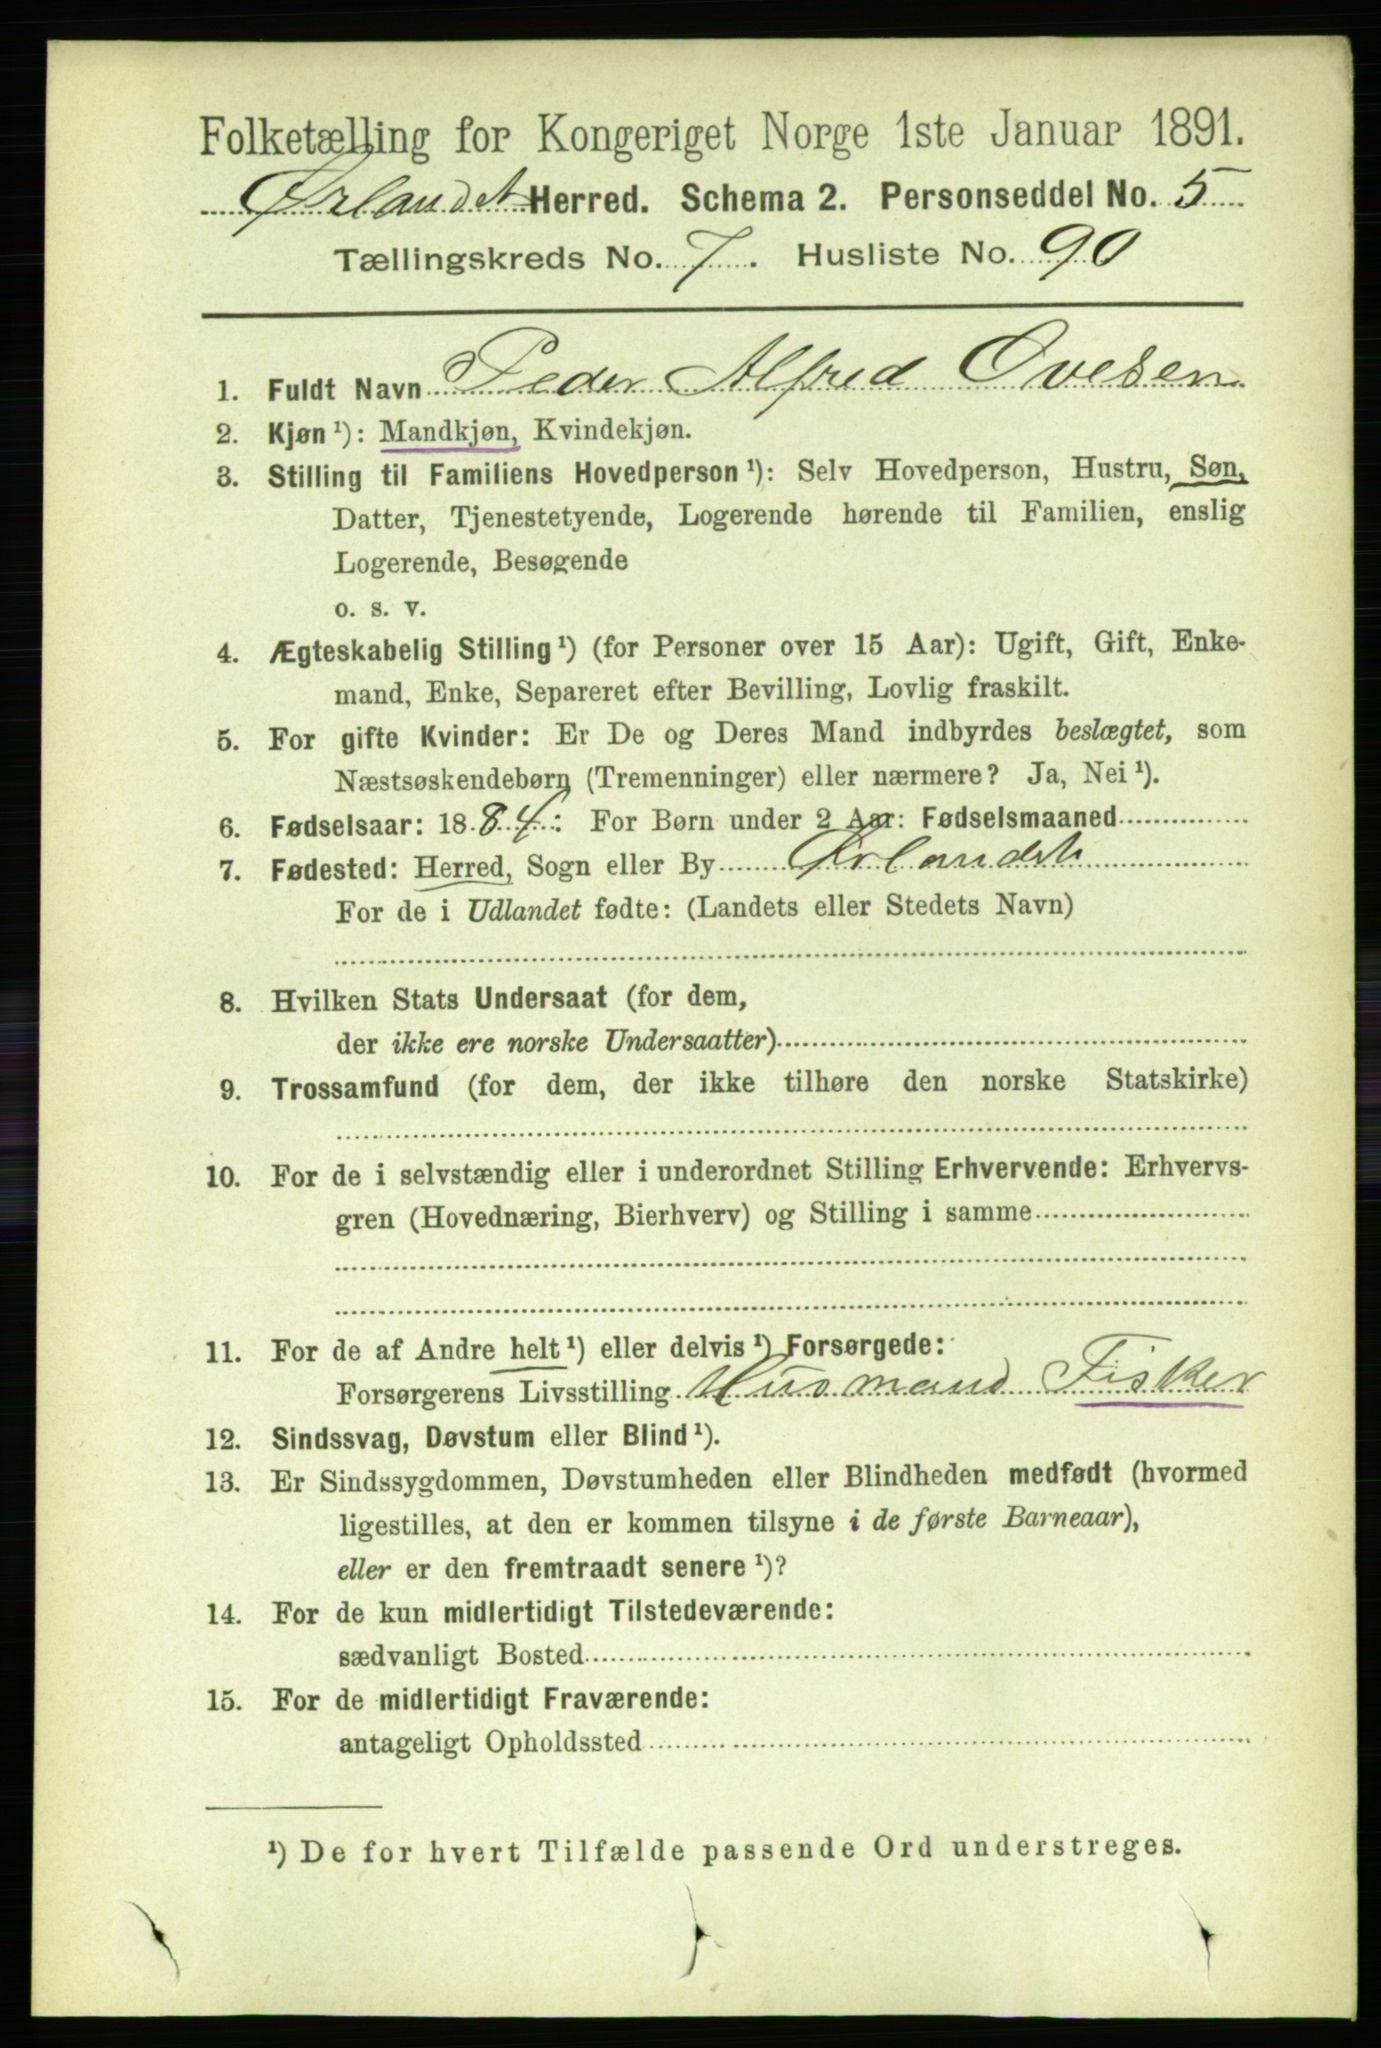 Folketælling for Kongeriget Norge 1ste Januar 1891.
Ørlandet Herred. Schema 2. Personseddel No. 5
Tællingskreds No. 7. Husliste No. 90
1. Fuldt Navn Peder Alfred Ovesen
2. Kjøn ¹): Mandkjøn, Kvindekjøn.
3. Stilling til Familiens Hovedperson ¹): Selv Hovedperson, Hustru, Søn,
Datter, Tjenestetyende, Logerende hørende til Familien, enslig
Logerende, Besøgende
o. s. v.
4. Ægteskabelig Stilling ¹) (for Personer over 15 Aar): Ugift, Gift, Enke-
mand, Enke, Separeret efter Bevilling, Lovlig fraskilt.
5. For gifte Kvinder: Er De og Deres Mand indbyrdes beslægtet, som
Næstsøskendebørn (Tremenninger) eller nærmere? Ja, Nei ¹).
6. Fødselsaar: 1884: For Børn under 2 Aar: Fødselsmaaned
7. Fødested: Herred, Sogn eller By Ørlandet
For de i Udlandet fødte: (Landets eller Stedets Navn)
8. Hvilken Stats Undersaat (for dem,
der ikke ere norske Undersaatter)
9. Trossamfund (for dem, der ikke tilhøre den norske Statskirke)
10. For de i selvstændig eller i underordnet Stilling Erhvervende: Erhvervs-
gren (Hovednæring, Bierhverv) og Stilling i samme
11. For de af Andre helt ¹) eller delvis ¹) Forsørgede:
Forsørgerens Livsstilling Husmand Fisker
12. Sindssvag, Døvstum eller Blind ¹).
13. Er Sindssygdommen, Døvstumheden eller Blindheden medfødt (hvormed
ligestilles, at den er kommen tilsyne i de første Barneaar),
eller er den fremtraadt senere ¹)?
14. For de kun midlertidigt Tilstedeværende:
sædvanligt Bosted
15. For de midlertidigt Fraværende:
antageligt Opholdssted
¹) De for hvert Tilfælde passende Ord understreges.